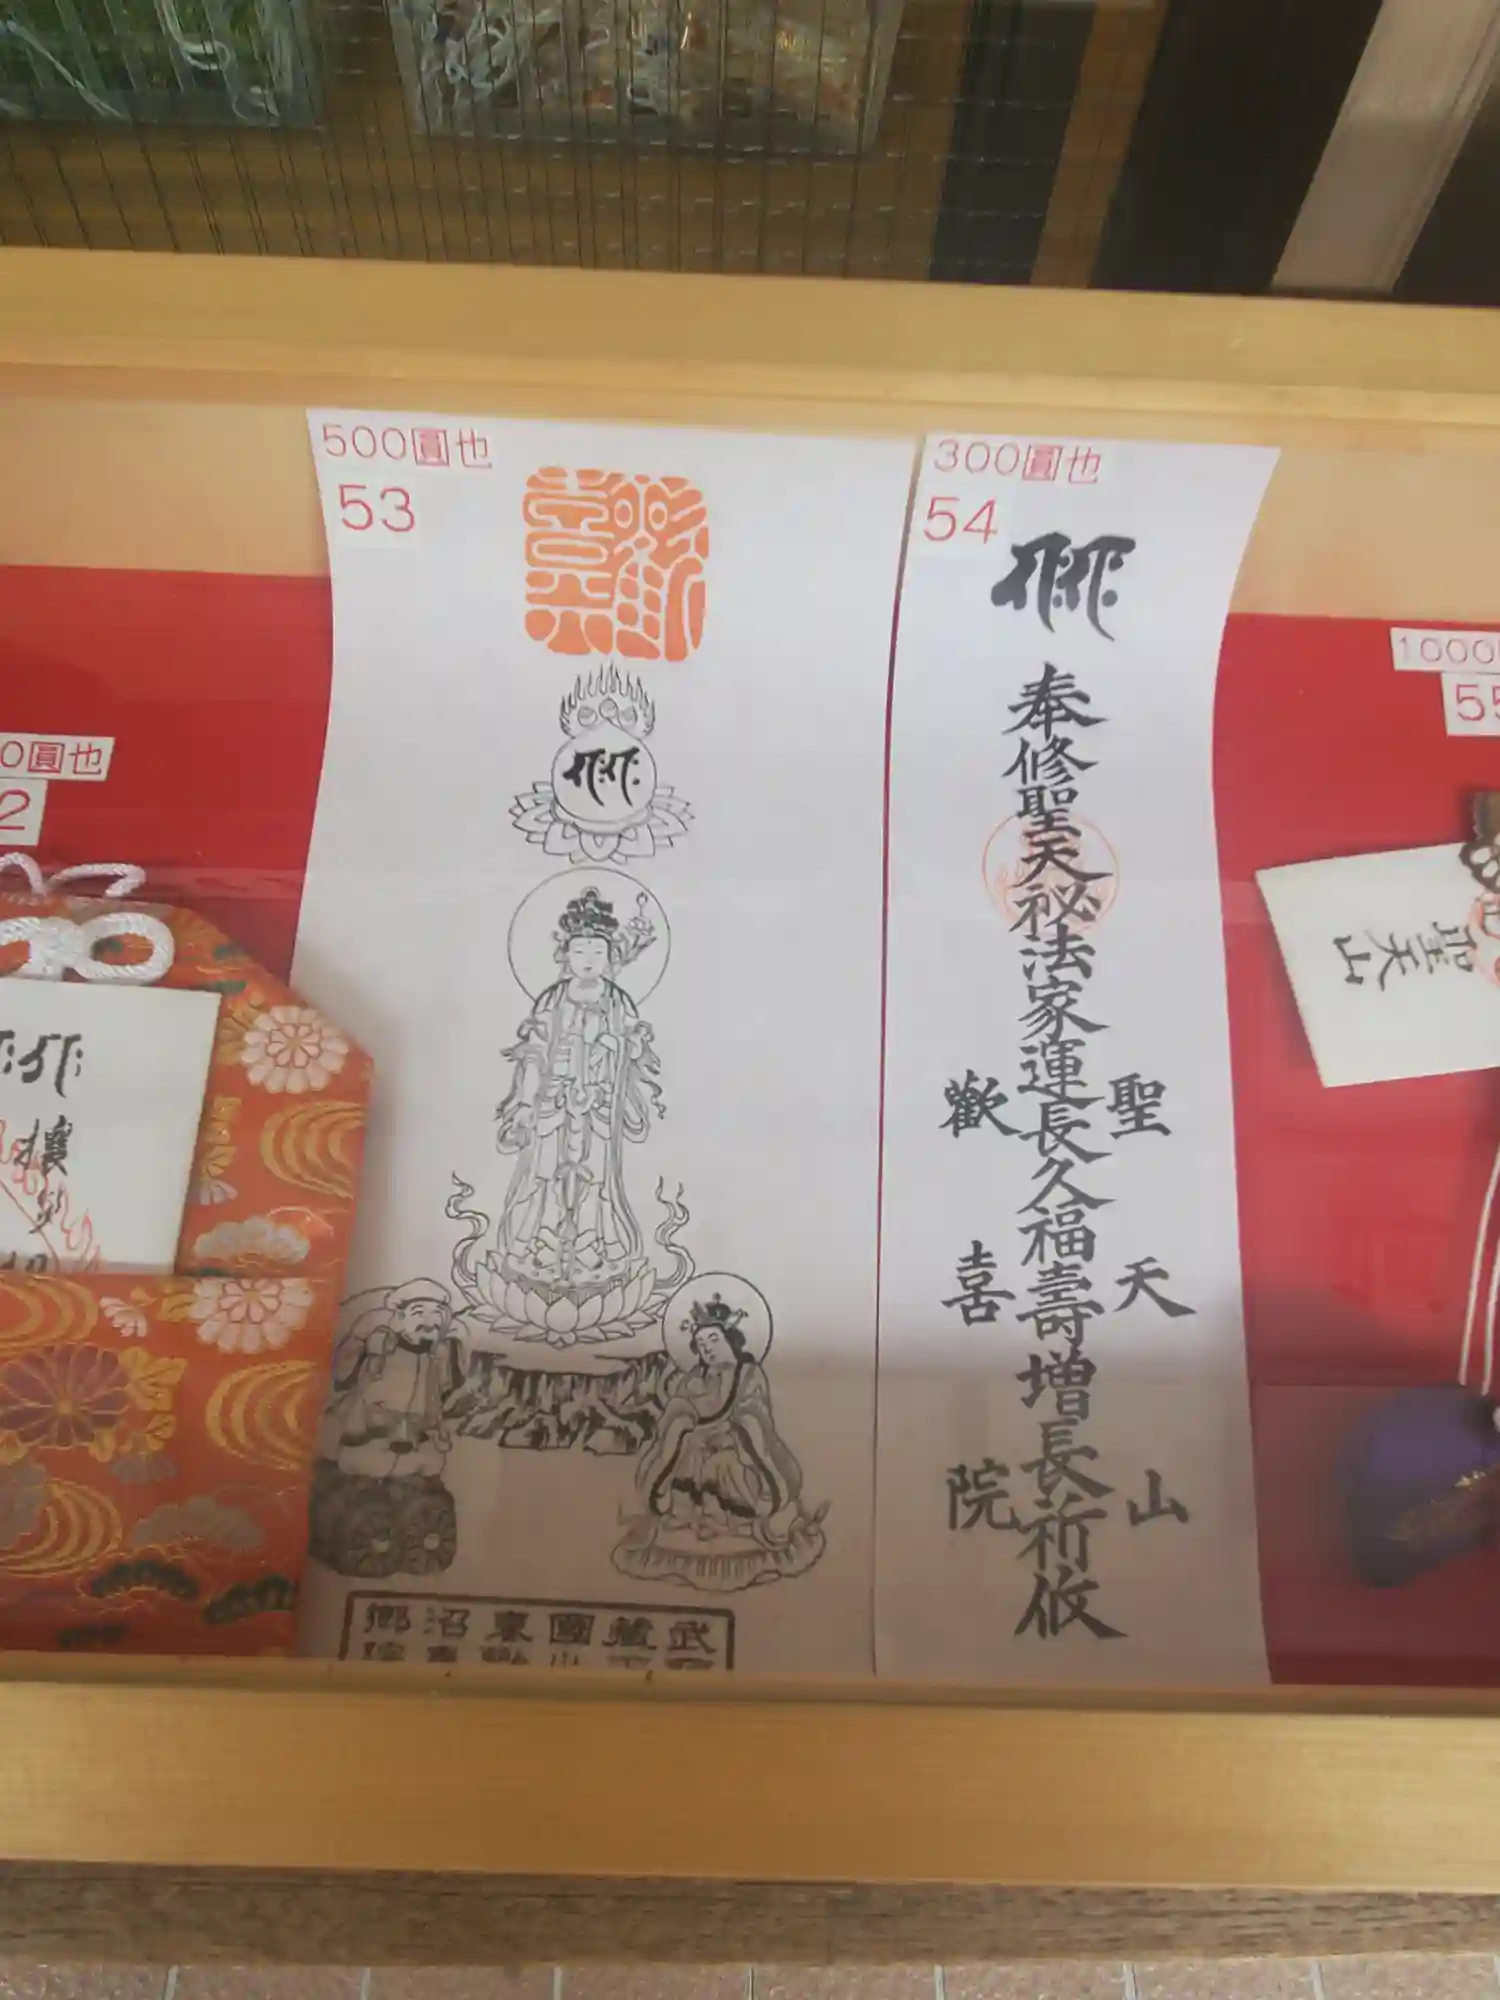 0圓也
2
500圓也
53
武蔵國東沼鄉
300圓也
54
奉修聖天祕法家運長久福壽增長祈攸
聖天山
歡喜院
1000
55
聖天山